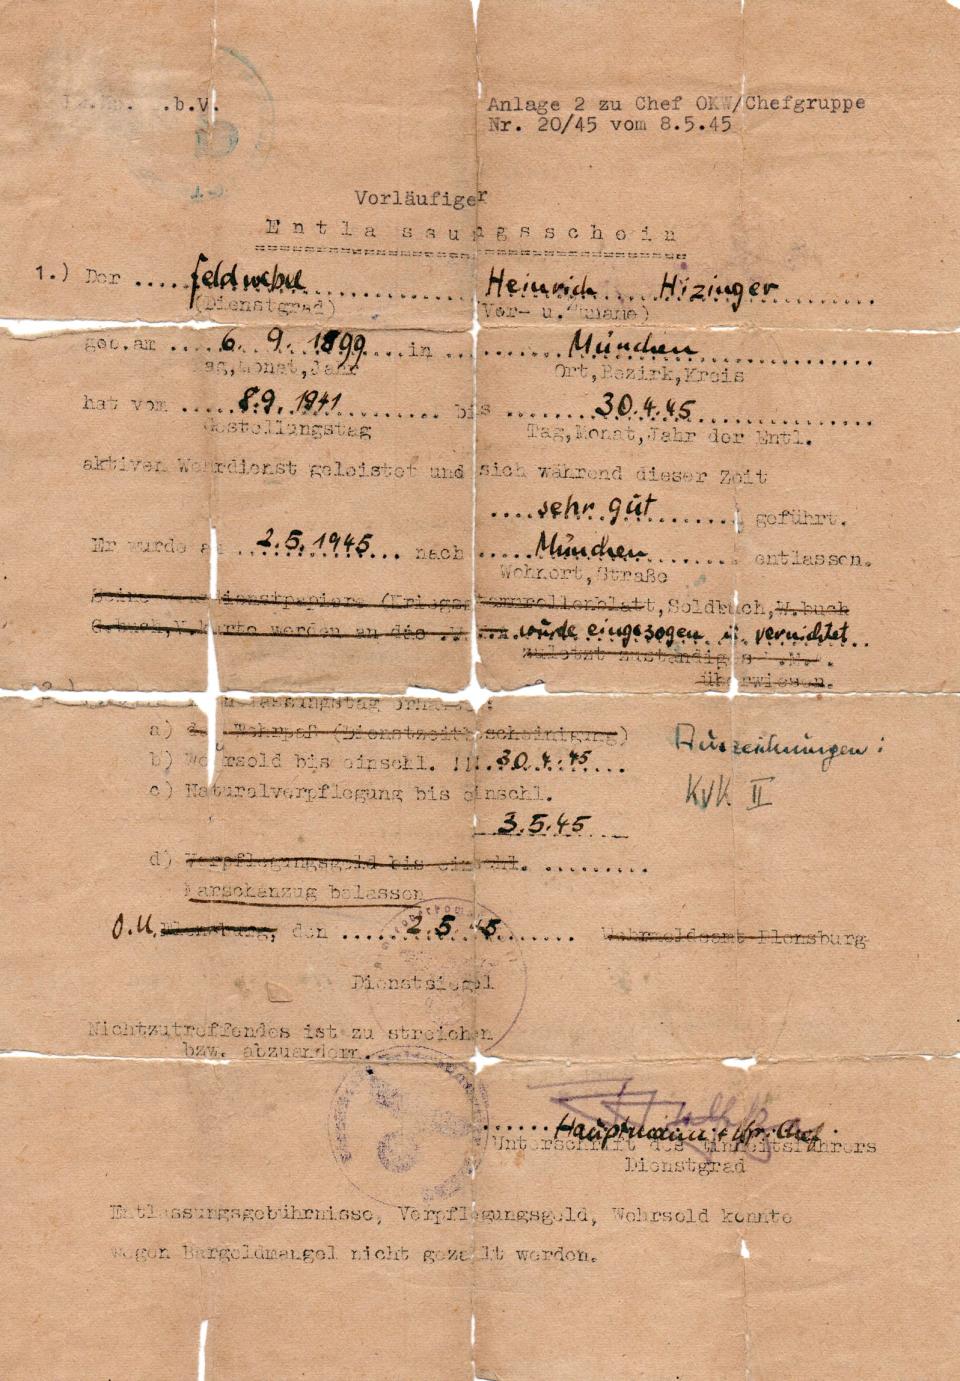 .b.V.
Anlage 2 zu Chef OKW/Chefgruppe
Nr. 20/45 vom 8.5.45
Vorläufiger
Entlassungsschein
1.) Der .... Feldwebel ........... Heinrich .... Hizinger ........
(Dienstgrad) (Vor- u. Zuname)
geb.am .... 6. 9. 1899 ...in .......... München ............
Tag,Monat,Jahr Ort,Bezirk,Kreis
hat vom ..... 8.9.1941 .......... bis ....... 30.4.45 ............
Gestellungstag Tag,Monat,Jahr der Entl.
aktiven Wehrdienst geleistet und sich während dieser Zeit
.... sehr gut ....... geführt.
Er wurde am .. 2.5.1945 ... nach ..... München ......... entlassen.
Wohnort,Straße
(Kriegsstammrollenblatt, Soldbuch, W.buch
werden an das wurde eingezogen u. vernichtet ..
zuletzt zuständige W.M.A.
überwiesen.
2.)
a) der Wehrpaß (Dienstzeitbescheinigung)
Auszeichnungen:
b) Wehrsold bis einschl. ... 30.4.45 ...
KVK II
c) Naturalverpflegung bis einschl.
3.5.45
d) Verpflegungsgeld bis einschl. .........
Marschanzug belassen
O.U. Flensburg, den ..... 2. 5. 45 ....... Wehrmeldeamt Flensburg
Dienstsiegel
Nichtzutreffendes ist zu streichen
bzw. abzuändern.
...... Hauptmann u.
Unterschrift des Einheitsführers
Dienstgrad
Entlassungsgebührnisse, Verpflegungsgeld, Wehrsold konnte
wegen Bargeldmangel nicht gezahlt werden.